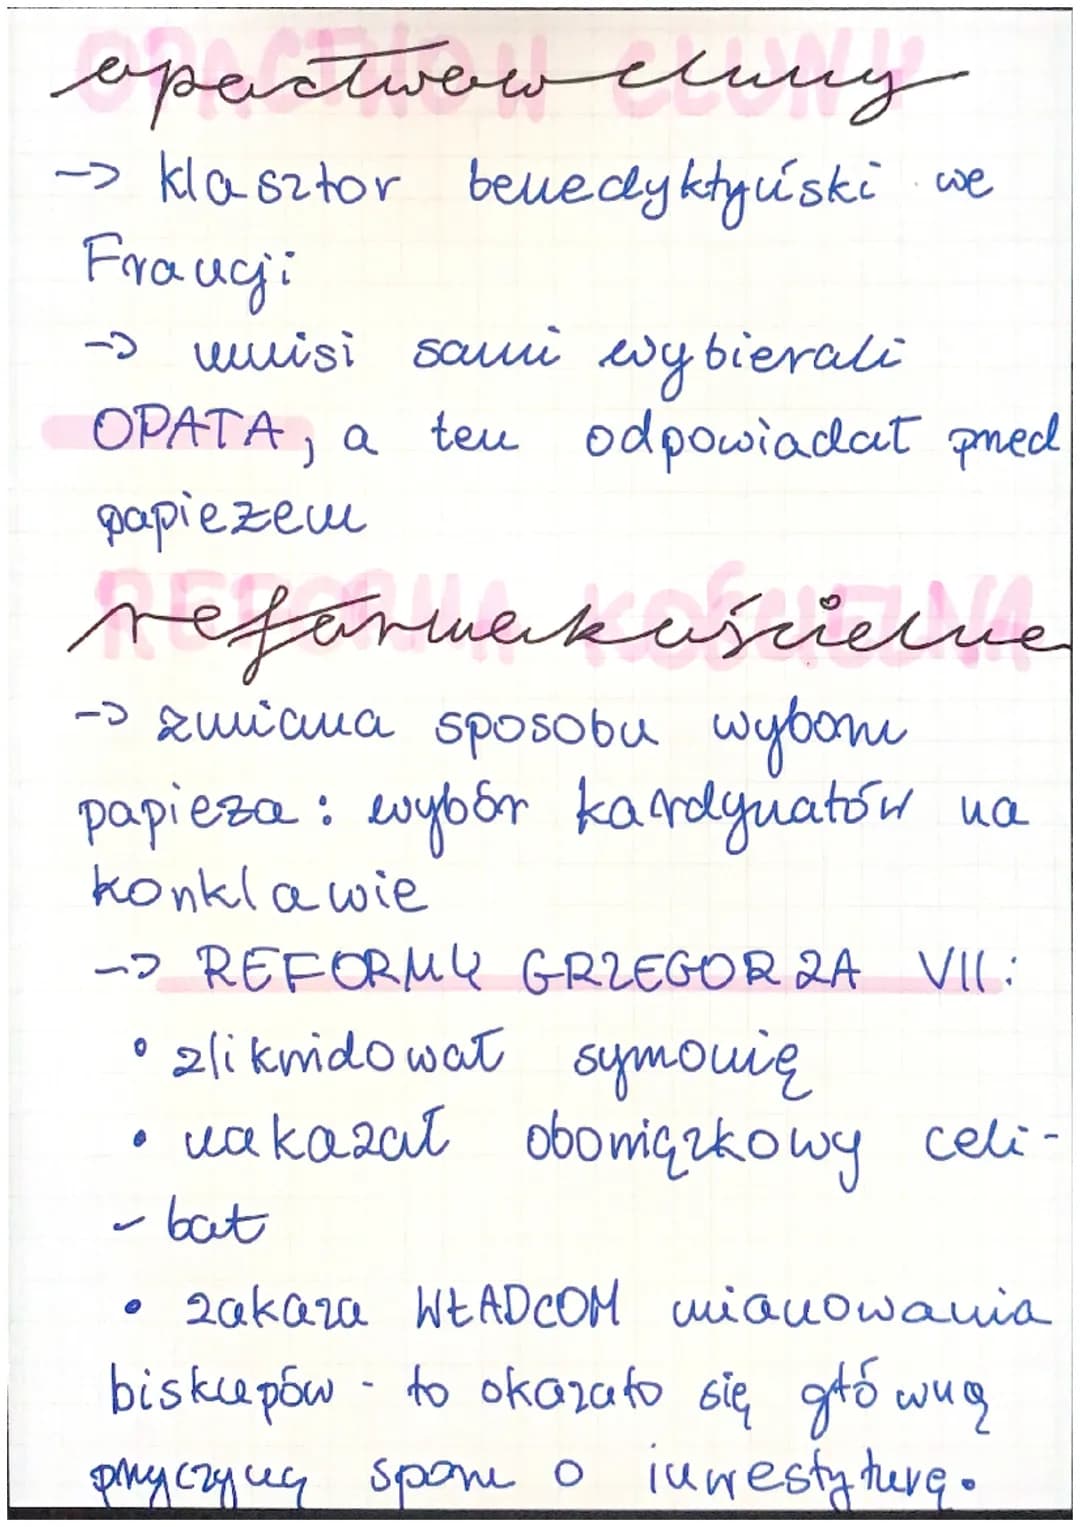 OPACTWO W CLUNY
opactwo w cluny
-> klasztor benedyktyński we
Francji
-> mnisi sami wybierali
OPATA, a ten odpowiadał przed
papieżem
REFORMA KOŚCIELNA
reforma kościelna
-> zmiana sposobu wyboru
papieża: wybór kardynałów na
konklawie
-> REFORMY GRZEGORZA VII:
• zlikwidował symonię
• nakazał obowiązkowy celi-
- bat
• zakaza WŁADCOM mianowania
biskupów - to okazało się główną
przyczyną sporu o inwestyturę.